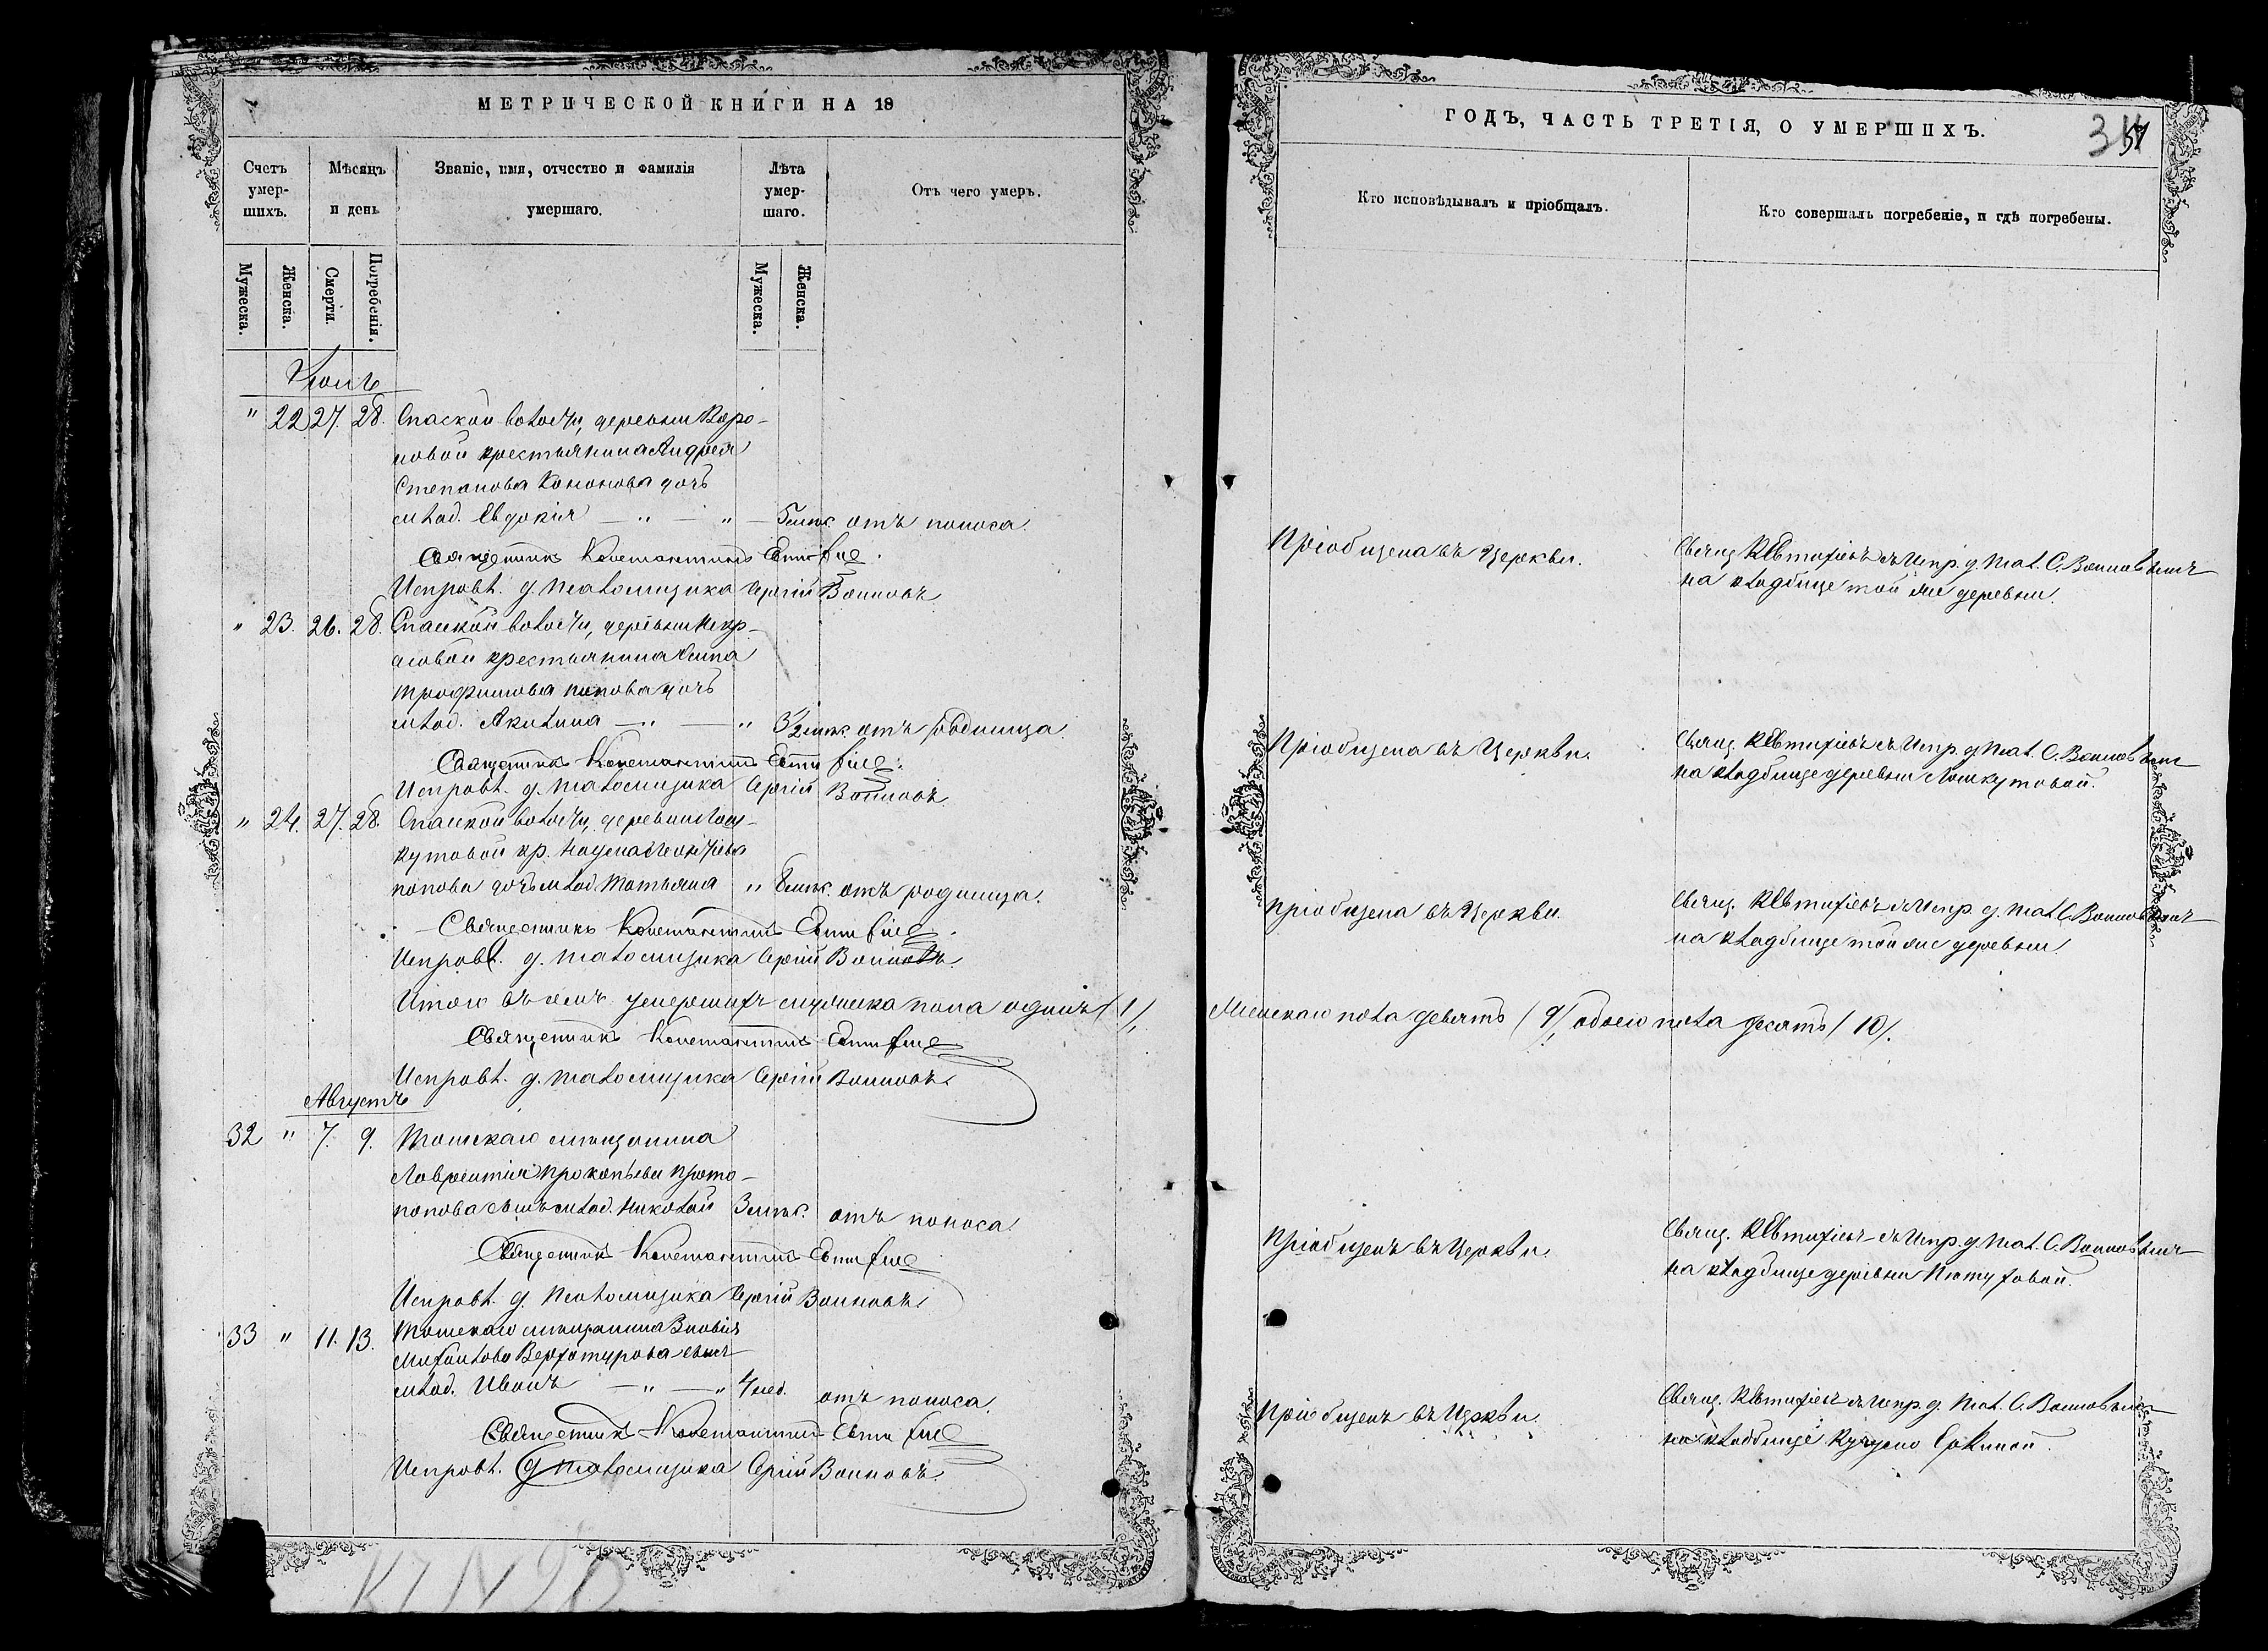 МЕТРИЧЕСКОЙ КНИГИ НА 18
Счетъ умер-шихъ.
Мѣсяцъ и день
Званіе, имя, отчество и фамилія умершаго.
Лѣта умер-шаго.
Отъ чего умеръ.
Мужеска.
Женска.
Смерти.
Погребенія.
Мужеска.
Женска.
" 22 27. 28. Спаской волости, деревни Воро-
новой крестьянина Андрея
Степанова Кононова дочь
млад. Евдокія — " — " — 5 мѣс. отъ поноса.
Священникъ Константинъ Евтифіе
Исправл. д. псаломщика Сергій Воиновъ
" 23. 26. 28. Спаской волости, деревни Некр-
асовой крестьянина Осипа
Трофимова Попова дочь
млад. Акилина — " — " 3½ мѣс. отъ родимца.
Священникъ Константинъ Евтифіе
Исправл. д. псаломщика Сергій Воиновъ.
" 24. 27. 28. Спаской волости, деревни Лош-
кутовой кр. Наума Леонтіева
Попова дочь млад. Татьяна " 8 мѣс. отъ родимца.
Священникъ Константинъ Евтифіе
Исправл. д. псаломщика Сергій Воиновъ.
Итого въ умершихъ мужеска пола одинъ /1/,
Священникъ Константинъ Евтифіе
Исправл. д. псаломщика Сергій Воиновъ.
Августъ
32 " 7. 9. Томскаго мѣщанина
Лаврентія Прокопьева Прото-
попова сынъ млад. Николай 3 мѣс. отъ поноса.
Священникъ Константинъ Евтифіе
Исправл. д. псаломщика Сергій Воиновъ
33 " 11. 13. Томскаго мѣщанина Зиновія
Михаилова Верхотурова сынъ
млад. Иванъ — " — " 4 нед. отъ поноса.
Священникъ Константинъ Евтифіе
Исправл. д. псаломщика Сергій Воиновъ.
ГОДЪ, ЧАСТЬ ТРЕТІЯ, О УМЕРШИХЪ.
Кто исповѣдывалъ и пріобщалъ.
Кто совершалъ погребеніе, и гдѣ погребены.
Пріобщена въ Церкви.
Свящ. К. Евтифіевъ съ Испр. д. псал. С. Воиновымъ
на кладбище той же деревни.
Пріобщена въ Церкви.
Свящ. К. Евтифіевъ съ Испр. д. псал. С. Воиновым
на кладбище деревни Лошкутовой.
Пріобщена въ Церкви.
Свящ. К. Евтифіевъ съ Испр. д. псал. С. Воиновымъ
на кладбище той же деревни.
Женскаго пола девять /9/, обоего пола десять /10/.
Пріобщенъ въ Церкви.
Свящ. К. Евтифіевъ съ Испр. д. псал. С. Воиновымъ
на кладбище деревни
Пріобщенъ въ Церкви.
Свящ. К. Евтифіевъ съ Испр. д. псал. С. Воиновымъ
на кладбище